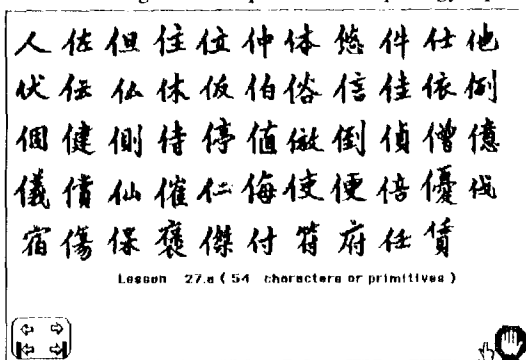 人 佐 但 住 位 仲 体 悠 件 仕 他
伏 伝 仏 休 仮 伯 俗 信 佳 依 例
個 健 側 侍 停 値 倣 倒 偵 僧 億
儀 償 仙 催 仁 侮 使 便 倍 優 伐
宿 傷 保 褒 傑 付 符 府 任 賃
Lesson 27.a ( 54 characters or primitives )